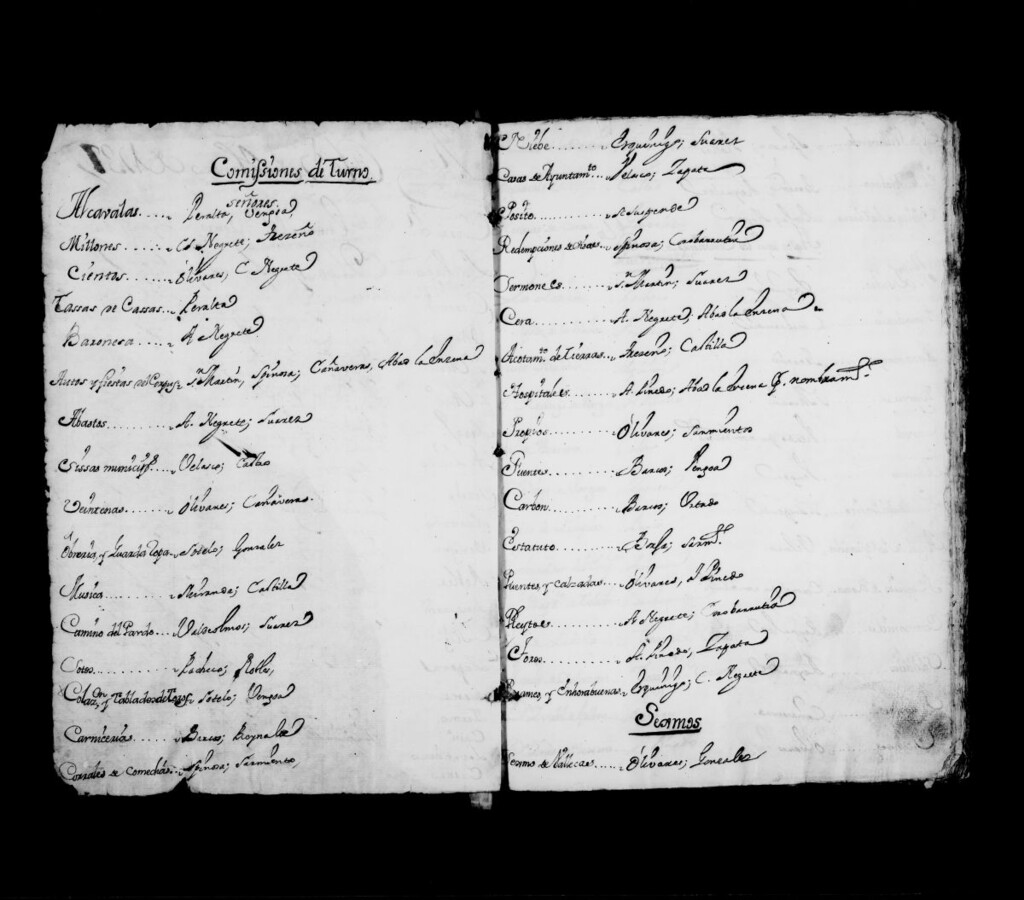 Comissiones de Turno
señores
Alcavalas..... Peralta, Vengoa
Millones...... Cd. Negrete; Fereño
Cientos....... Olivares, C. Negrete
Tassas de Cassas... Peralta
Baronesa..... A. Negrete
Autos y fiestas del Corpus Sn. Martin, Spinosa; Cañaveras, Abad la Enzena
Abastos......... A. Negrete; Suarez
Sissas municip.s.. Velasco;
Veintenas....... Olivares; Cañaveras.
Obreria, y Guarda Ropa. Sotelo; Gonzalez
Musica........ ; Castilla
Camino del Pardo... Valdeolmos; Suarez
Sotos......... Pacheco; Robles,
Colaz.on y Tablados de Toros. Sotelo; Vengoa
Carniceria...... Barcos; Reynalte
Corrales de Comedias.. Spinosa; Sarmiento,
Niebe......... ; Suarez
Casas de Ayuntam.to... Velasco; Zapata
Posito......... Se Suspende
Redempciones de ... Spinosa;
Sermones........ Sn. Martin; Suarez
Cera......... A. Negrete; Abad la Enzena
Acotam.to de Tierras.. Fereño; Castilla
Hospitales...... A. Pinedo; Abad la Enzena p.r nombram.to
Propios........ Olivares; Sarmiento
Fuentes........ Barcos; Vengoa
Carbon........ Barcos; Ortado
Estatuto....... ; Sarm.to
Puentes, y Calzadas... Olivares, A. Pinedo
Pleytos........ A. Negrete;
Toros......... A. Pinedo, Zapata
Pesames, y Enhorabuenas. ; C. Negrete
Sexmos
Sexmo de Vallecas..... Olivares; Gonzalez